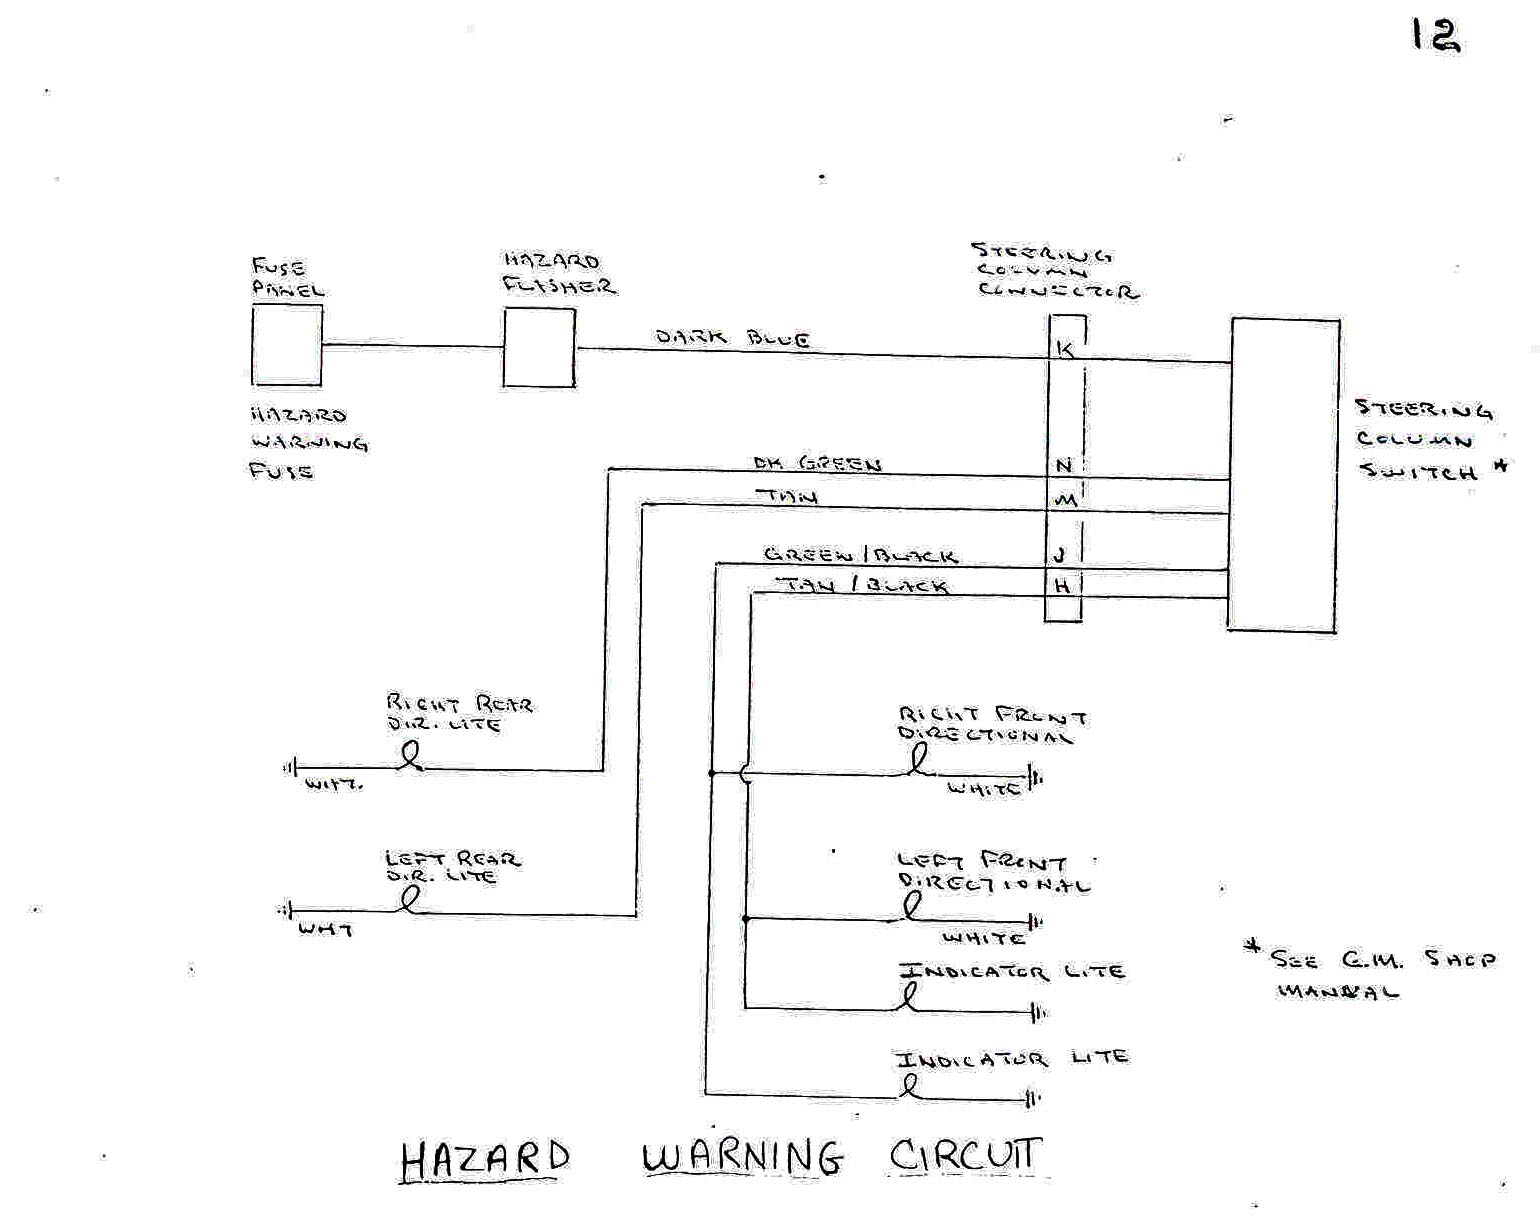 12
FUSE
PANEL
HAZARD
FLASHER
STEERING
COLUMN
CONNECTOR
DARK BLUE
K
HAZARD
WARNING
FUSE
STEERING
COLUMN
SWITCH *
DK GREEN
N
TAN
M
GREEN/BLACK
J
TAN/BLACK
H
RIGHT REAR
DIR. LITE
WHT.
RIGHT FRONT
DIRECTIONAL
WHITE
LEFT REAR
DIR. LITE
WHT
LEFT FRONT
DIRECTIONAL
WHITE
INDICATOR LITE
INDICATOR LITE
* SEE G.M. SHOP
MANUAL
HAZARD WARNING CIRCUIT